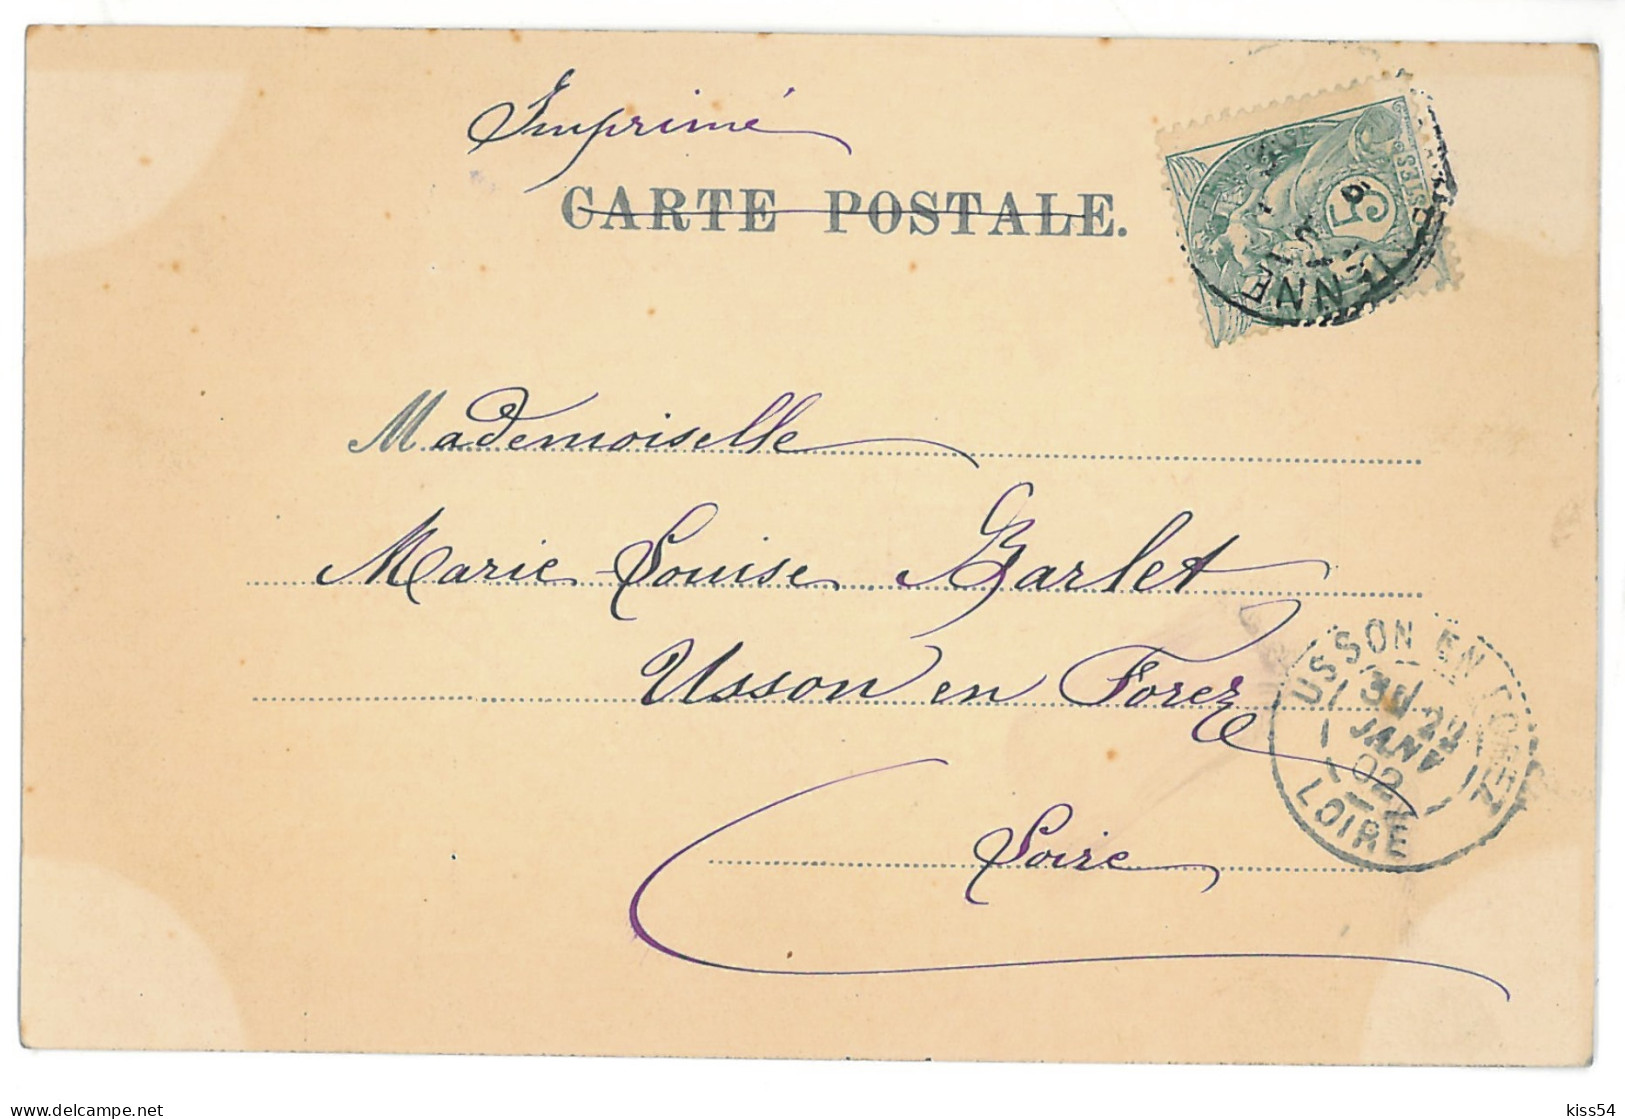 Imprimé
CARTE POSTALE.
5
POSTES
Mademoiselle
Marie Louise Barlet
Usson en Forez
Loire
USSON EN FOREZ
29
JANV
02
LOIRE
delcampe.net
kiss54